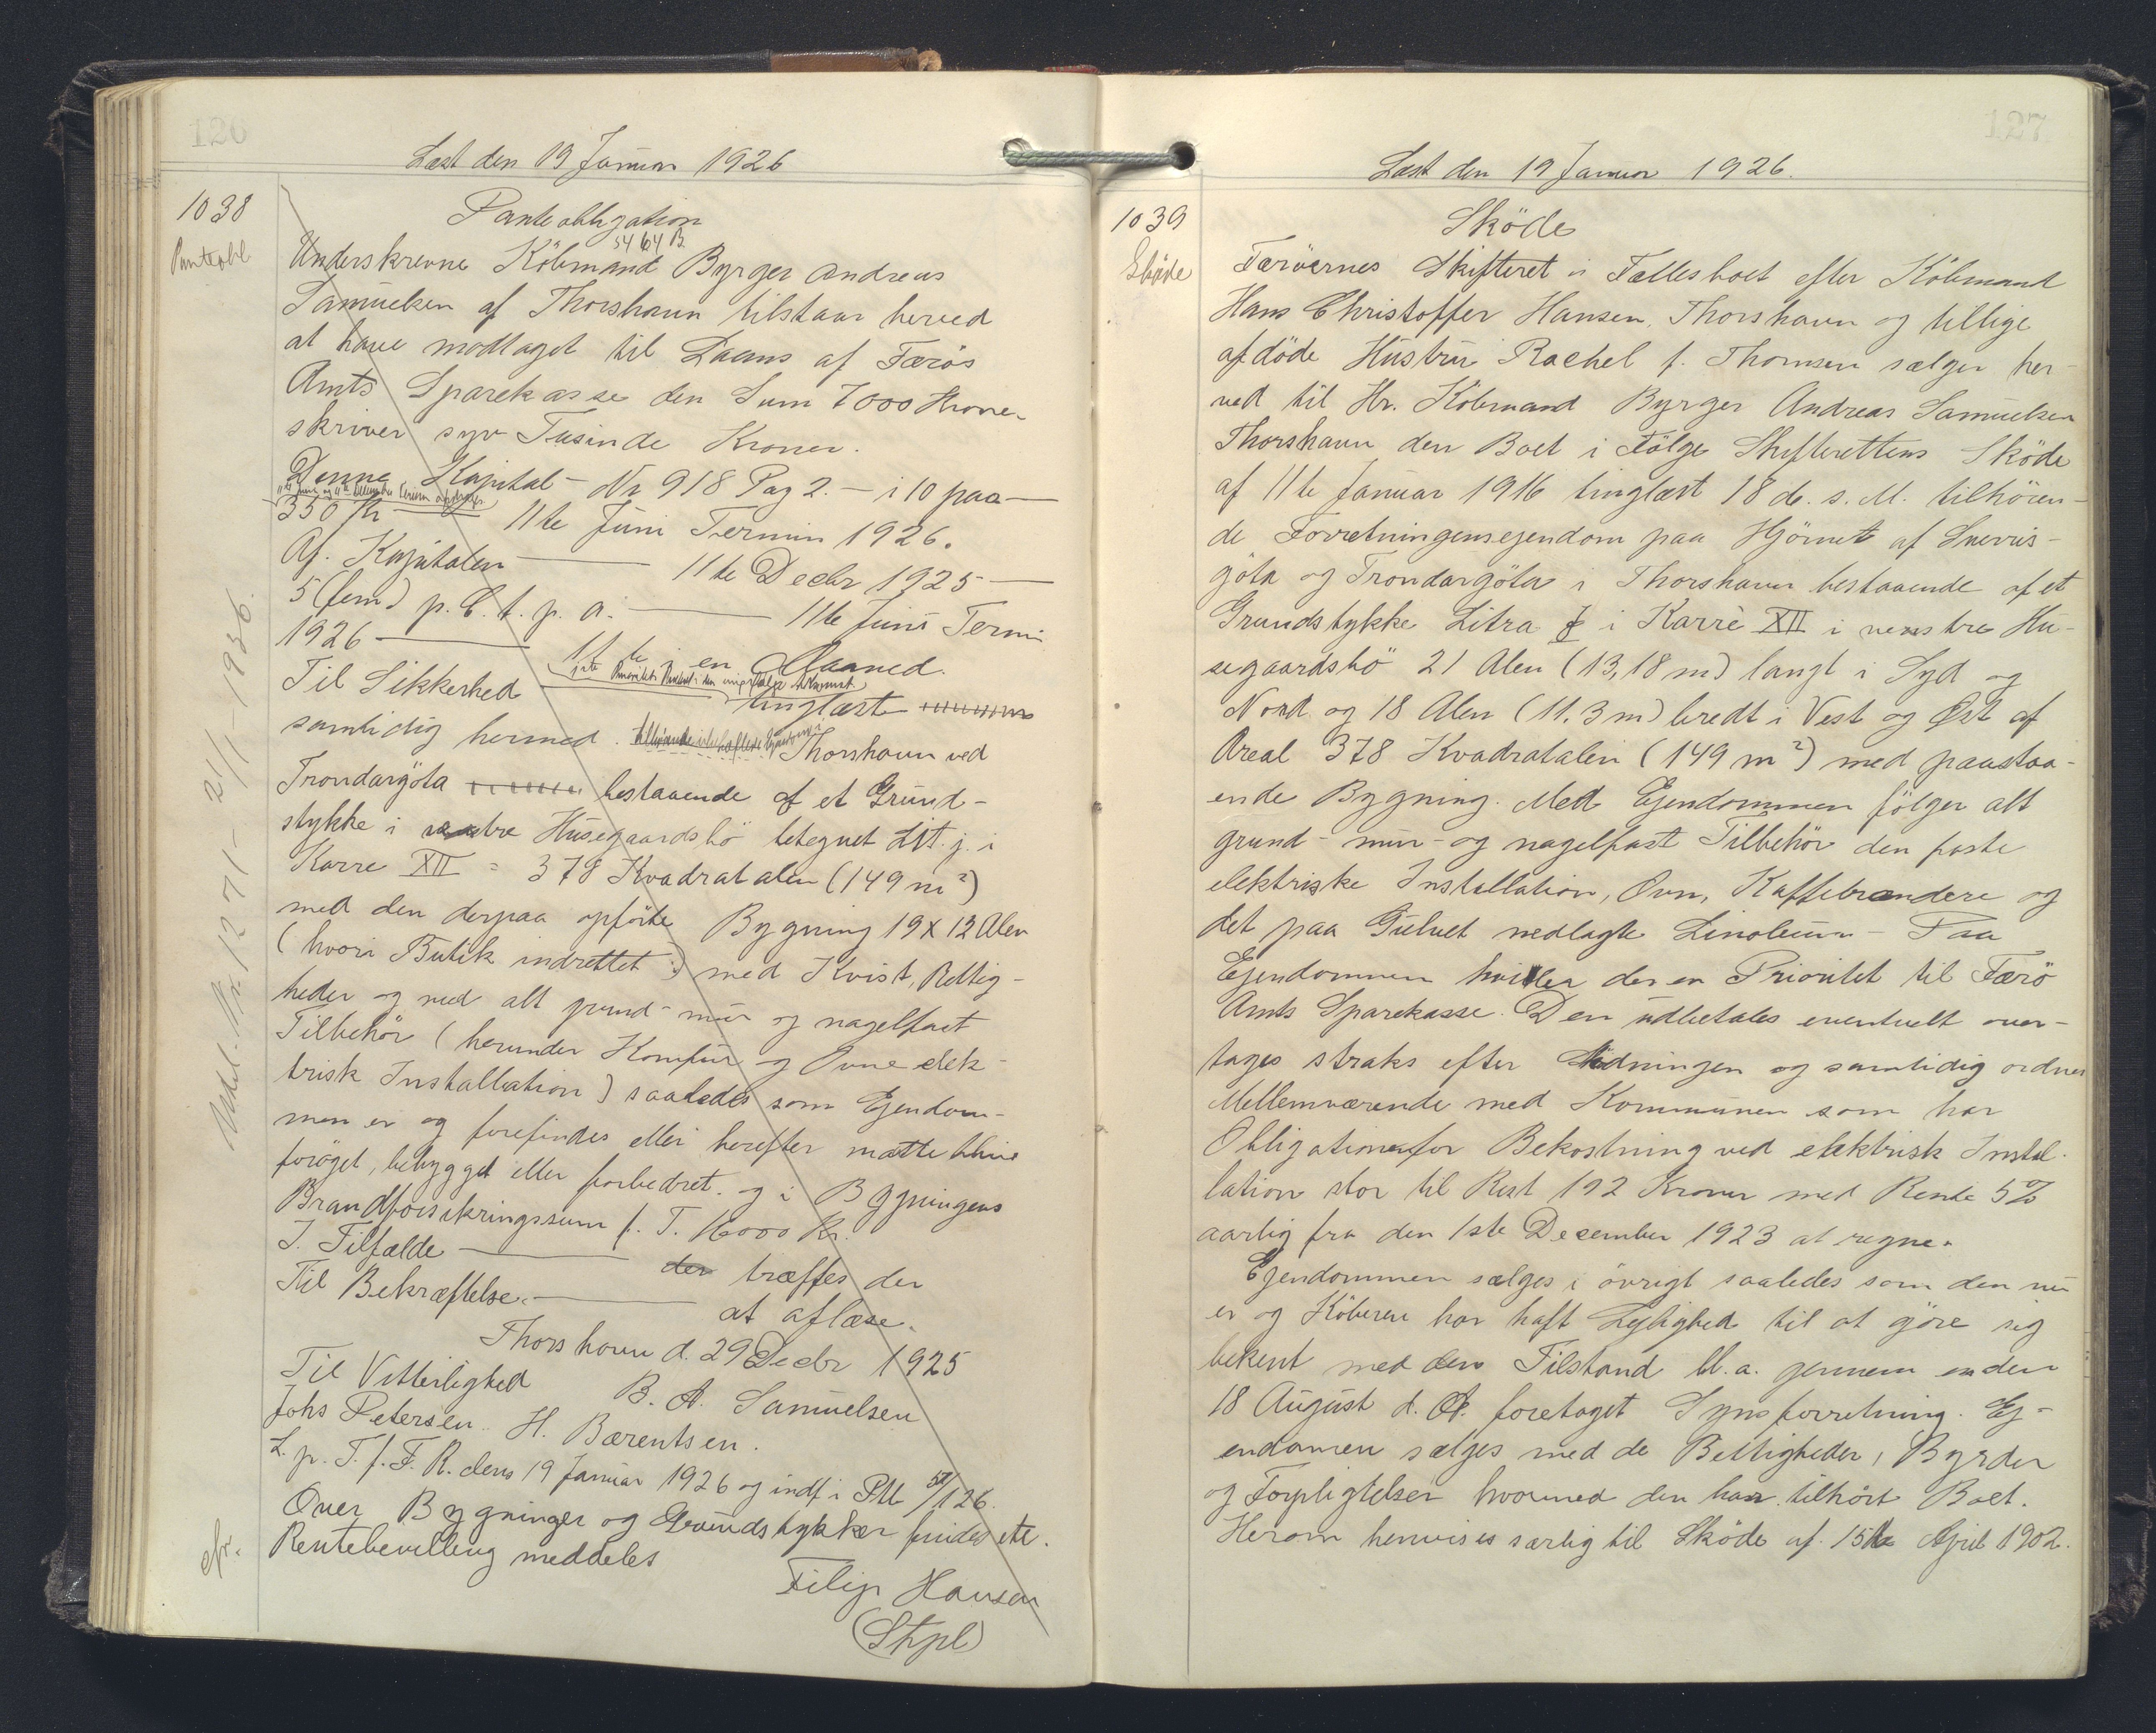 126
Læst den 19 Januar 1926
1038
Panteobl
Panteobligation
54 64 B.
Underskrevne Köbmand Byrger Andreas
Samuelsen af Thorshavn tilstaar herved
at have modtaget til Laans af Færös
Amts Sparekasse den Sum 7000 Kroner
skriver syv Tusinde Kroner.
Denne Kapital - Nr 918 Pag 2. - i 10 paa
350 Kr 11te Juni Termin 1926.
Af. Kapitalen 11te Decbr 1925
5 (fem) p. C. t. p. a. 11te Juni Termi
1926 11te en Maaned.
Til Sikkerhed
tinglæst
samtidig hermed. Thorshavn ved
Trondargöta bestaaende af et Grund-
stykke i vestre Husegaardsbö betegnet Lit. j. i
Karre XII = 378 Kvadratalen (149 m²)
med den derpaa opförte Bygning 19 x 12 Alen
(hvori Butik indrettet) med Kvist, Rettig-
heder og med alt grund- mur og nagelfast
Tilbehör (herunder Komfur og Ovne elek-
trisk Installation) saaledes som Ejendom-
men er og forefindes eller herefter maatte blive
foröget, bebygget eller forbedret. og i Bygningens
Brandforsikringssum p. T. 16000 Kr.
I. Tilfælde der træffes der
Til Bekræftelse. at aflæse.
Thorshavn d. 29 Decbr 1925
Til Vitterlighed B. A. Samuelsen
Johs Petersen. H. Bærentsen.
L. p. T. f. F. R. den 19 Januar 1926 og indf i Ptb 57/126.
Over Bygninger og Grundstykker findes etc.
Rentebevilling meddeles
Filip Hansen
(Stpl)
Udsl. Nr 1271 - 21/1 - 1936.
127.
Læst den 19 Januar 1926.
1039
Sköde
Sköde
Færöernes Skifteret i Fællesboet efter Köbmand
Hans Christoffer Hansen, Thorshavn og tillige
afdöde Hustru Rachel f. Thomsen sælger her-
ved til Hr. Köbmand Byrger Andreas Samuelsen
Thorshavn den Boet i Fölge Skifterettens Sköde
af 11te Januar 1916 tinglæst 18 ds. s. M. tilhören-
de Forretningensejendom paa Hjörnet af Sverris-
göta og Trondargöta i Thorshavn bestaaende af et
Grundstykke Litra j i Karrè XII i venstre Hu-
segaardsbö 21 Alen (13,18 m) langt i Syd og
Nord og 18 Alen (11.3 m) bredt i Vest og Øst af
Areal 378 Kvadratalen (149 m²) med paastaa-
ende Bygning. Med Ejendommen fölger alt
grund- mur- og nagelfast Tilbehör den faste
elektriske Installation, Ovn, Kaffebrændere og
det paa Gulvet nedlagte Linoleum - Paa
Ejendommen hviler der en Prioritet til Færö
Amts Sparekasse. Den udbetales eventuelt over-
tages straks efter Sködningen og samtidig ordnes
Mellemværende med Kommunen som har
Obligation for Bekostning ved elektrisk Instal-
lation stor til Rest 192 Kroner med Rente 5%
aarlig fra den 1ste December 1923 at regne.
Ejendommen sælges i övrigt saaledes som den nu
er og Köberen har haft Lejlighed til at gjöre sig
bekent med den Tilstand bl. a. gennem en den
18 August d. A. foretaget Synsforretning. Ej-
endomen sælges med de Rettigheder, Byrder
og Forpligtelser hvormed den har tilhört Boet.
Herom henvises særlig til Sköde af 15de April 1902.